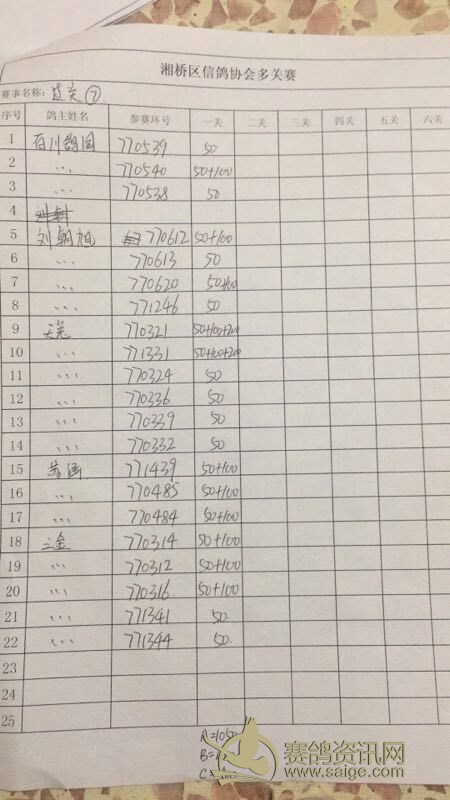 湘桥区信鸽协会多关赛
赛事名称: 过关⑦
序号 鸽主姓名 参赛环号 一关 二关 三关 四关 五关 六关
1 百川鸽园 770539 50
2 〃 770540 50+100
3 〃 770538 50
4
5 刘朝旭 770612 50+100
6 〃 770613 50
7 〃 770620 50+100
8 〃 771246 50
9 770321 50+100+200
10 〃 771331 50+100+200
11 〃 770324 50
12 〃 770336 50
13 〃 770339 50
14 〃 770332 50
15 771439 50+100
16 〃 770485 50+100
17 〃 770484 50+100
18 三金 770314 50+100
19 〃 770312 50+100
20 〃 770316 50+100
21 〃 771341 50
22 〃 771344 50
23
24
25
A=1050
B=
C=
赛鸽资讯网
www.saige.com